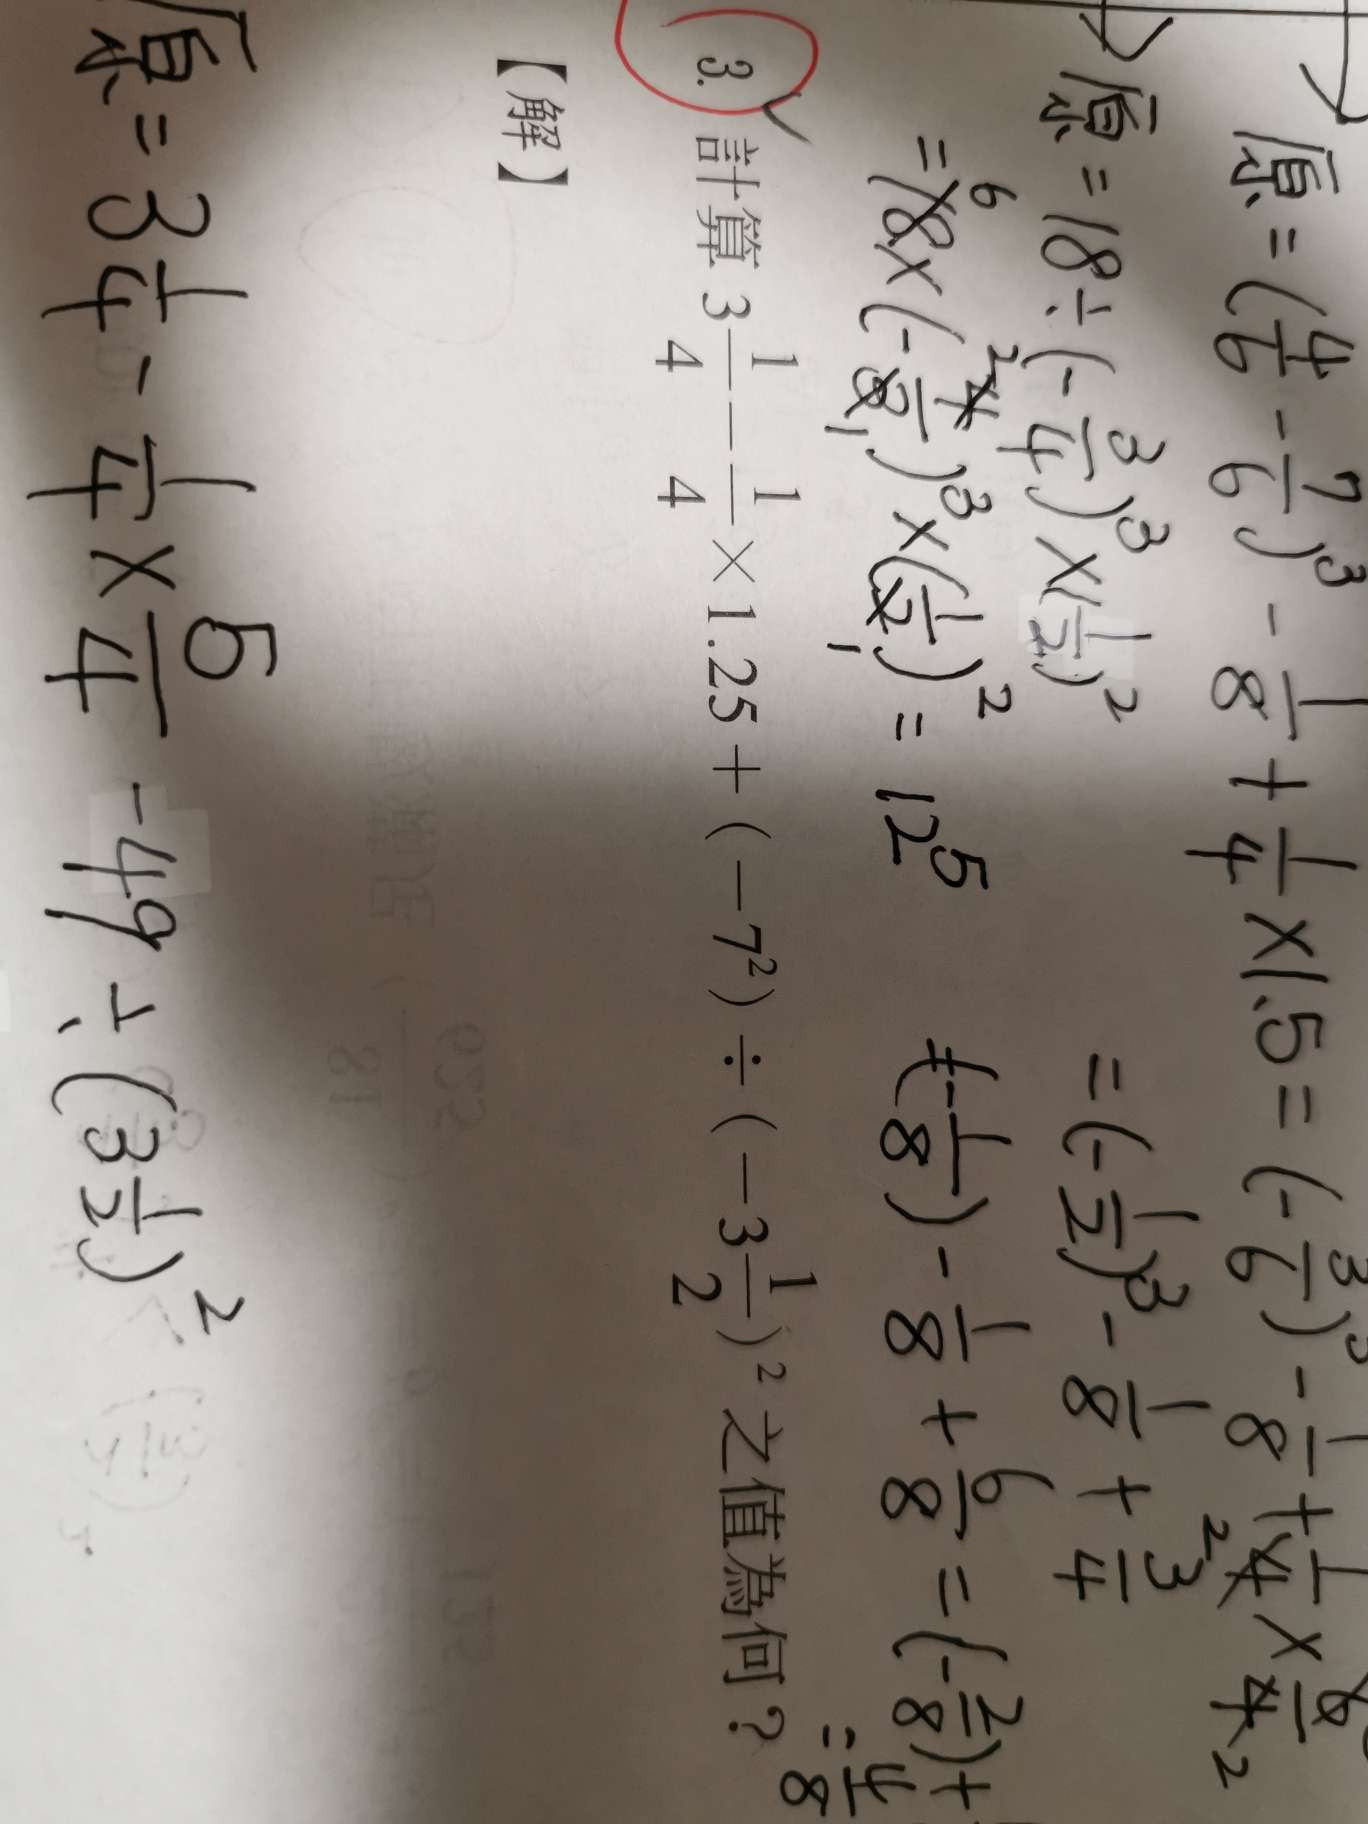 原=(4/6-7/6)³-1/8+1/4×1.5=(-3/6)³-1/8+1/4×
=(-1/2)³-1/8+3/4
(-1/8)-1/8+6/8=(-2/8)+
=4/8
原=18÷(-3/4)³×(1/2)²
=18×(-4/3)³×(1/2)²=12⁵
3. 計算 3 1/4-1/4×1.25+(-7²)÷(-3 1/2)²之值為何?
【解】
原=3 1/4-1/4×5/4-49÷(3 1/2)²